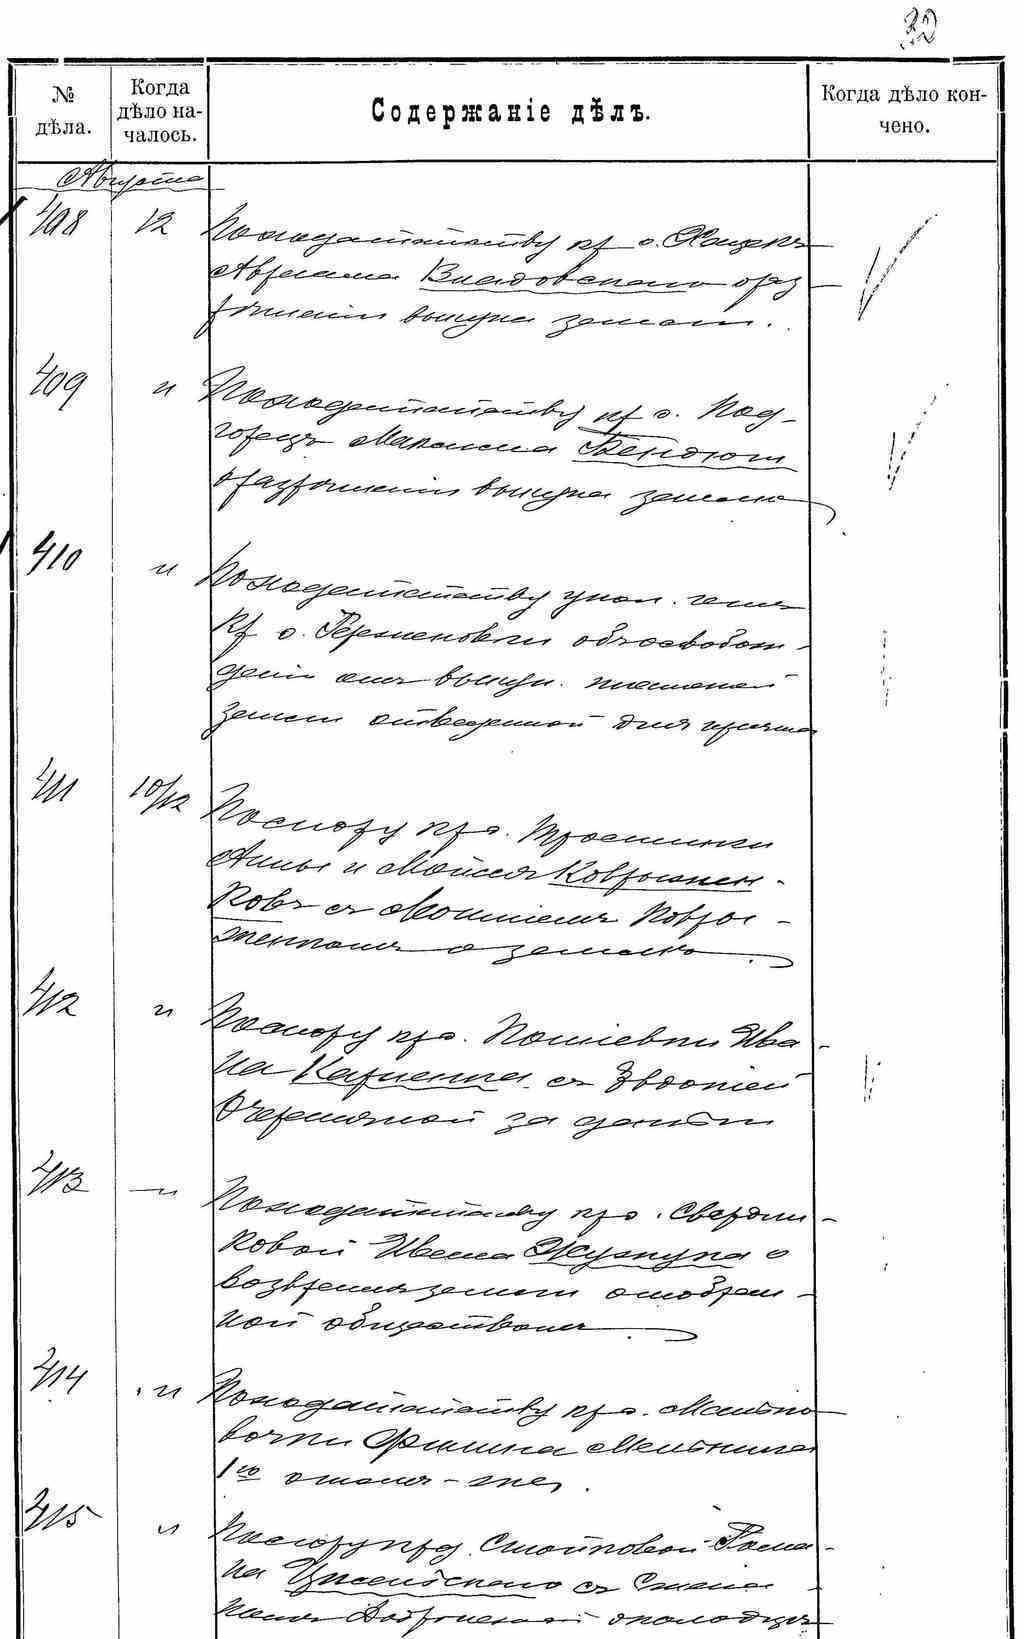 32
№ дѣла.
Когда дѣло началось.
Содержаніе дѣлъ.
Когда дѣло кончено.
Августа
408 12 По ходатайству кр. с. Хащекъ
Авраама Владовскаго о раз-
рѣшеніи выкупа земли.
409 " По ходатайству кр. с. Под-
горецъ Максима Бендюги
о разрѣшеніи выкупа земли
410 " По ходатайству упол. чеш.
кр. с. объ освобож-
деніи отъ выкупн. платежей
земли отведенной для причта
411 10/12 По спору кр. с. Тростинки
Анны и Мойсея Коврижен-
ковъ съ Коври-
женкомъ о землѣ
412 " По спору кр. с. Ива-
на Карпенка съ Евдокіей
за деньги
413 " По ходатайству кр. с. Свердли-
ковой Ивана о
возвращеніи земли отобран-
ной обществомъ
414 " По ходатайству кр. с. Мань­ко-
вочки Филипа Мельника
1го о томъ-же.
415 " По спору кр. д. Рома-
на съ Степа-
о колодцѣ